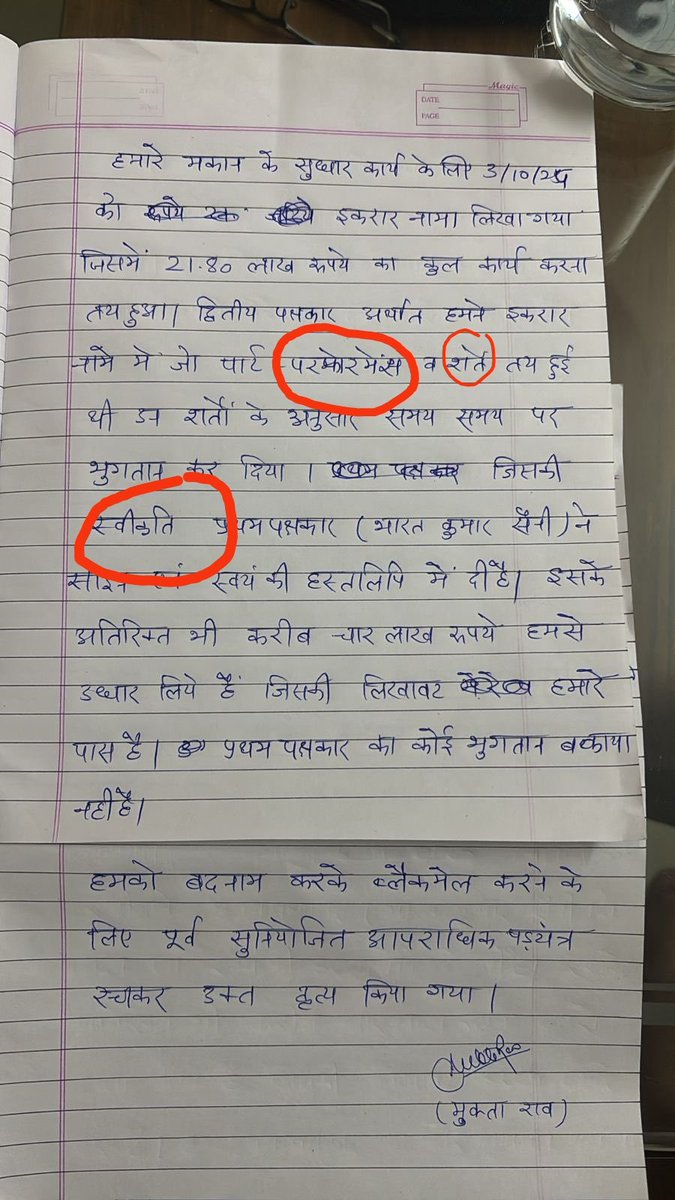 Magic
DATE
PAGE
हमारे मकान के सुधार कार्य के लिए 3/10/25
को इकरार नामा लिखा गया
जिसमें 21.80 लाख रुपये का कुल कार्य करना
तय हुआ। द्वितीय पक्षकार अर्थात हमने इकरार
नामे में जो पार्ट परफोरमेंस व शर्ते तय हुई
थी उन शर्तों के अनुसार समय समय पर
भुगतान कर दिया । जिसकी
स्वीकृति प्रथम पक्षकार (भारत कुमार सैनी) ने
स्वयं की हस्तलिपि में दी है। इसके
अतिरिक्त भी करीब चार लाख रुपये हमसे
उधार लिये हैं जिसकी लिखावट हमारे
पास है। प्रथम पक्षकार का कोई भुगतान बकाया
नहीं है।
हमको बदनाम करके ब्लैकमेल करने के
लिए पूर्व सुनियोजित आपराधिक षड़यंत्र
रचाकर उक्त कृत्य किया गया ।
(मुक्ता राव)